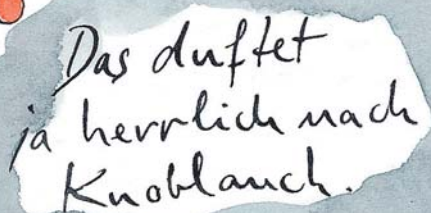 Das duftet
ja herrlich nach
Knoblauch.